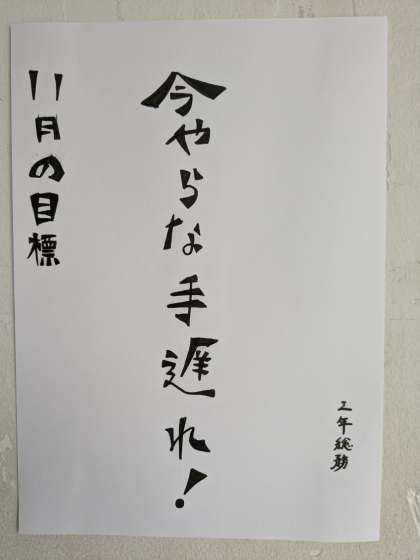 11月の目標
今やらな手遅れ!
三年総務